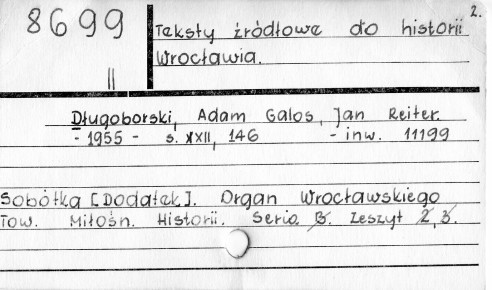 8699
II
2.
Teksty źródłowe do historii
Wrocławia.
Długoborski, Adam Galos, Jan Reiter.
- 1955 - s. XXII, 146 - inw. 11199
Sobótka [Dodatek]. Organ Wrocławskiego
Tow. Miłośn. Historii. Seria B. Zeszyt 2, 3.